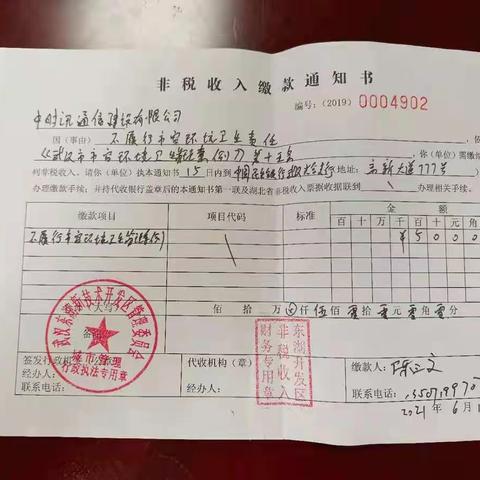 非税收入缴款通知书
编号:(2019) 0004902
中时讯通信建设有限公司
因(事由) 不履行市容环境卫生责任
《武汉市市容环境卫生管理条例》第十五条 ,你(单位)需缴纳
列非税收入。请你(单位)执本通知书 15 日内到 中国民生银行 地址: 高新大道777号
办理缴款手续;并持代收银行盖章后的本通知书第一联及湖北省非税收入票据收据联到 \ 办理相关手续。
缴款项目 项目代码 标准 金额
百 十 万 千 百 十 元 角 分
不履行市容环境卫生管理条例 \ ¥ 5 0 0 0 0
(大写) 佰 拾 万 仟 伍 佰 零 拾 零 元 零 角 零 分
备注
武汉东湖新技术开发区管理委员会
城市管理
行政执法专用章
签发行政机关
经办人:
联系电话:
代收机构(章)
经办人:
联系电话:
东湖开发区
非税收入
财务专用章
缴款人:
联系电话:
2021 年 6 月